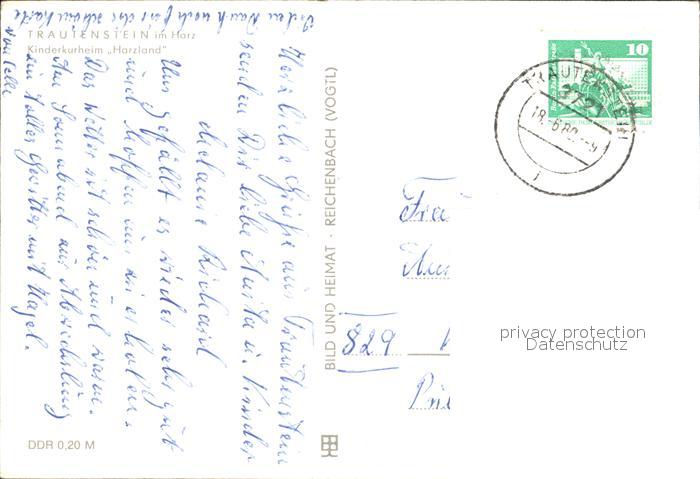 TRAUTENSTEIN im Harz
Kinderkurheim „Harzland"
Herzliche Grüße aus Trautenstein
senden Dir liebe Anita u. Kinder
Melanie Richard
Uns gefällt es wieder sehr gut
und hoffen uns zu erholen.
Das Wetter ist schön und warm.
Am Sonnabend zur Abwechslung
ein tolles Gewitter mit Hagel.
Vielen Dank noch für die schöne Karte
von
BILD UND HEIMAT · REICHENBACH (VOGTL)
DDR 0,20 M
10
TRAUTENSTEIN
3721
18.-6.80
829
privacy protection
Datenschutz